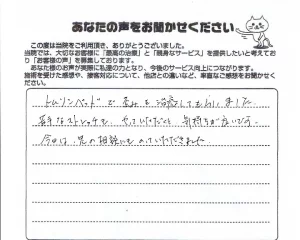 あなたの声をお聞かせください
この度は当院をご利用頂き、ありがとうございました。
当院では、大切なお客様に「最高の治療」と「親身なサービス」を提供したいと考えており「お客様の声」を募集しております。
あなた様のお声が実際に私達の力となり、今後のサービス向上につながります。
施術を受けた感想や、接客対応について、他店との違いなど、率直なご感想をお聞かせください。
トムソンベッドで歪みを治療してもらいました。
苦手なストレッチも、やっていただくと気持ちが良いです。
今回は、兄の相談にものっていただきました